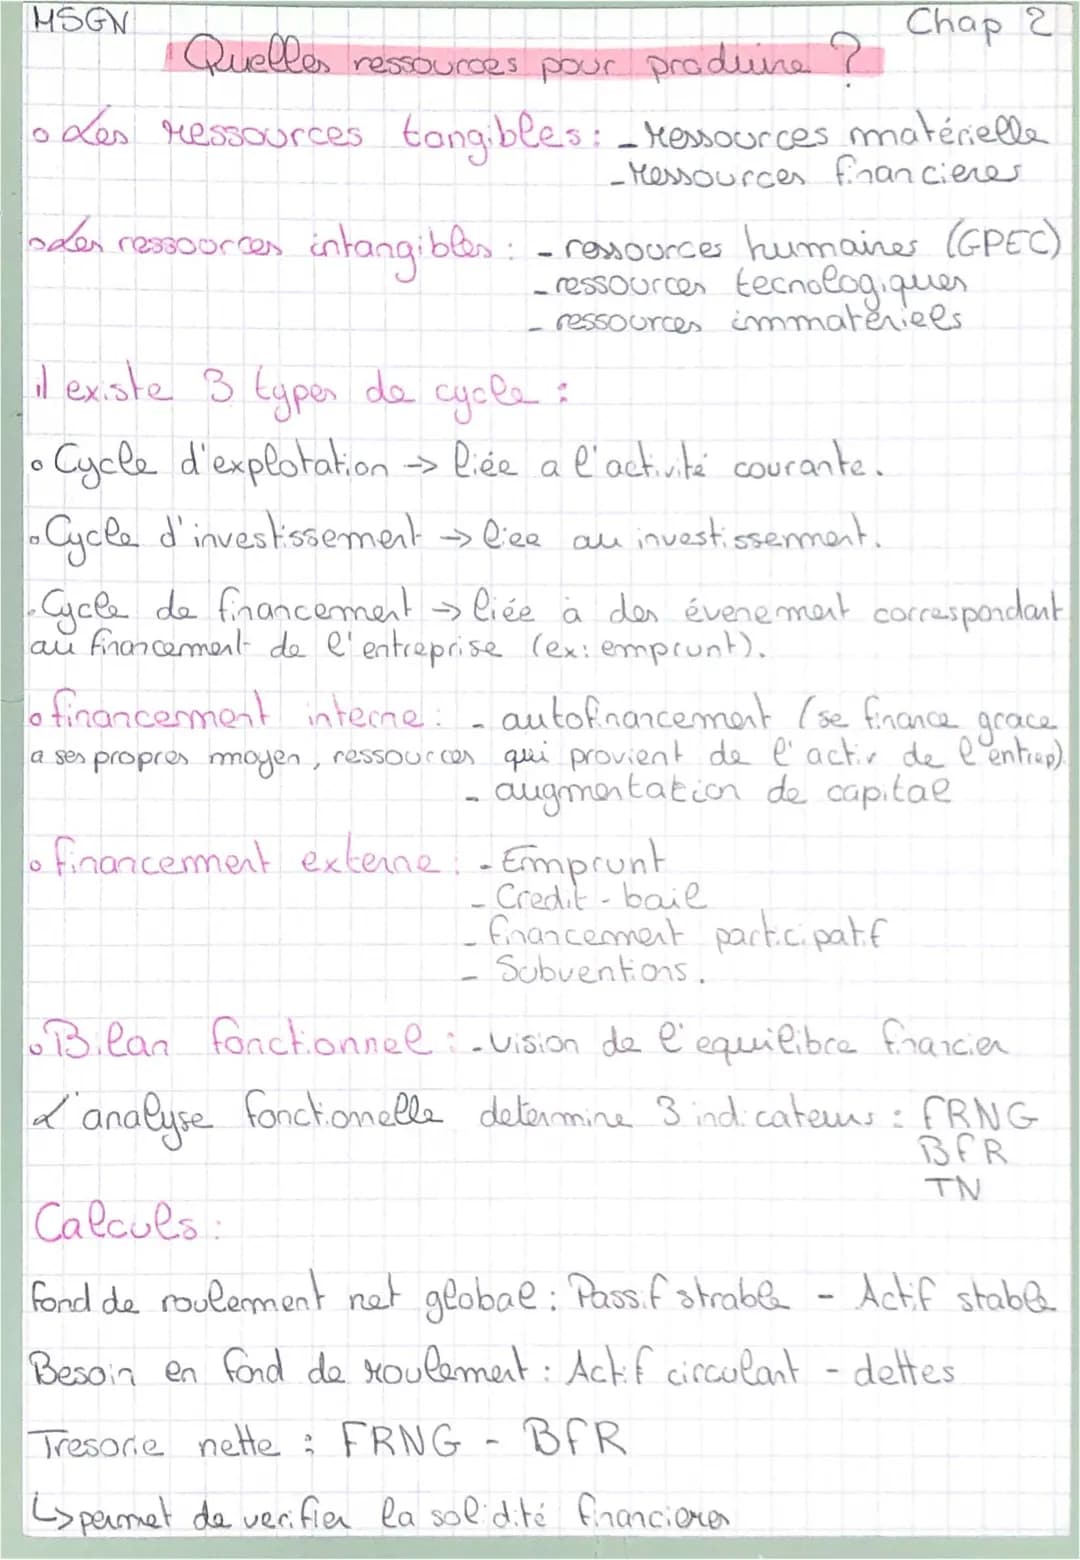 MSGN
Chap 2
Quelles ressources pour produire ?
Les ressources tangibles : - ressources matérielle
- ressources financieres
des ressources intangibles : - ressources humaines (GPEC)
- ressources tecnologiques
- ressources immatériels
il existe 3 types de cycle :
Cycle d'explotation → liée a l'activité courante.
Cycle d'investissement → liee au investissenment.
Cycle de financement → liée à des évenement correspondant
au financement de l'entreprise (ex: emprunt).
financement interne : - autofinancement (se finance grace
a ses propres moyen, ressources qui provient de l'activ de l'entrep).
- augmentation de capital
financement externe : - Emprunt
- Credit - bail
- financement participatif
- Subventions.
Bilan fonctionnel : - vision de l'equilibre financier
L'analyse fonctionelle determine 3 indicateurs : FRNG
BFR
TN
Calculs :
Fond de roulement net global : Passif strable - Actif stable
Besoin en fond de roulement : Actif circulant - dettes
Tresorie nette : FRNG - BFR
↳ permet de verifier la solidité financieres